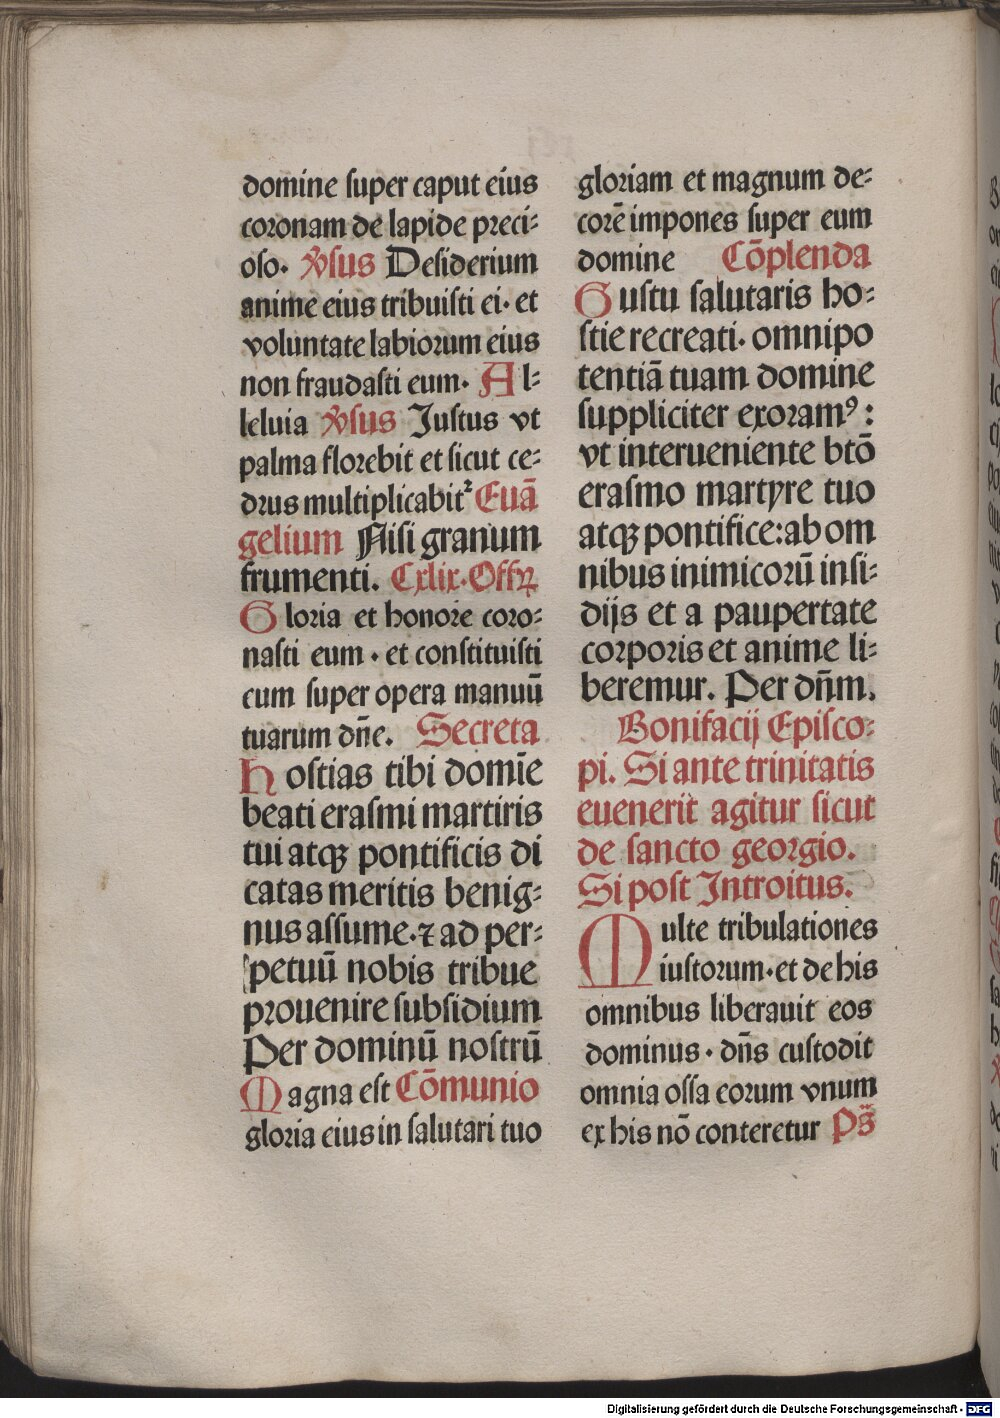 domine super caput eius
coronam de lapide preci-
oso. v̉sus Desiderium
anime eius tribuisti ei· et
voluntate labiorum eius
non fraudasti eum· Al-
leluia v̉sus Justus vt
palma florebit et sicut ce-
drus multiplicabitᷣ Euā
gelium Nisi granum
frumenti. Cxlix·Offꝝ
Gloria et honore coro-
nasti eum · et constituisti
eum super opera manuū
tuarum dn̄e. Secreta
Hostias tibi domīe
beati erasmi martiris
tui atqꝫ pontificis di
catas meritis benig-
nus assume·⁊ ad per-
petuū nobis tribue
prouenire subsidium
Per dominū nostrū
Magna est Cōmunio
gloria eius in salutari tuo
gloriam et magnum de-
corē impones super eum
domine Cōplenda
Gustu salutaris ho-
stie recreati· omnipo
tentiā tuam domine
suppliciter exoramꝰ :
vt interueniente btō
erasmo martyre tuo
atqꝫ pontifice:ab om
nibus inimicorū insi-
dijs et a paupertate
corporis et anime li-
beremur. Per dn̄m.
Bonifacij Episco-
pi. Si ante trinitatis
euenerit agitur sicut
de sancto georgio.
Si post Introitus.
Multe tribulationes
iustorum·et de his
omnibus liberauit eos
dominus · dn̄s custodit
omnia ossa eorum vnum
ex his nō conteretur Ps̄
Digitalisierung gefördert durch die Deutsche Forschungsgemeinschaft - DFG